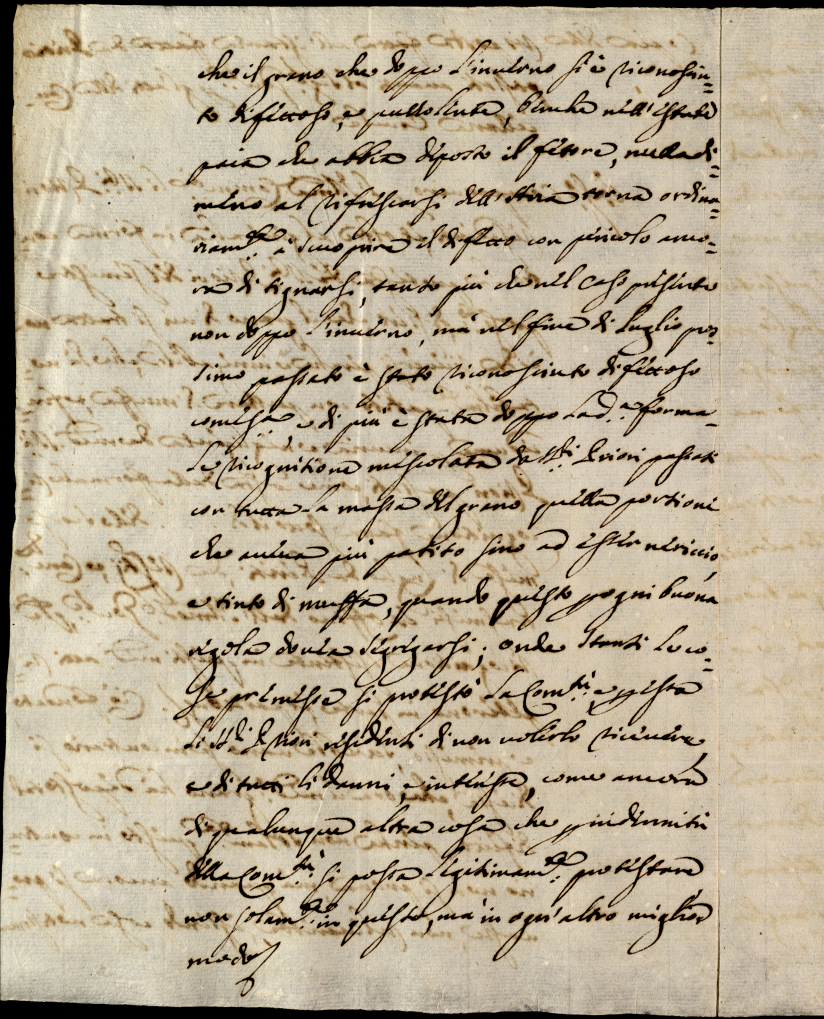 che il grano che doppo l'inverno si è riconosciu=
to difettoso, e puzzolente, benche nell'estate
paia che abbia deposto il fetore, nulladi=
meno al rinfrescarsi dell'Aria torna ordina=
riam.te à scuoprire il difetto con pericolo anco=
ra di tignarsi, tanto più che nel caso presente
non doppo l'inverno, mà nel fine di Luglio pros=
simo passato è stato riconosciuto difettoso
come s.a, e di più è stata doppo la d.a forma=
le ricognitione mescolata da SS.ri Priori passati
con tutta la massa del grano quella portione
che aveva più patito sino ad esser nericcio,
e tinto di muffa, quando questo p ogni buona
regola doveva segregarsi; onde stanti le co=
se premesse si protestò la Com.tà, e p essa
li SS.ri Priori residenti di non volerlo ricevere,
e di tutti li danni, e interesse, come ancora
di qualunque altra cosa che p indennità
della Com.tà si possa legitimam.te protestare
non solam.te in questo, mà in ogn'altro miglior
modo